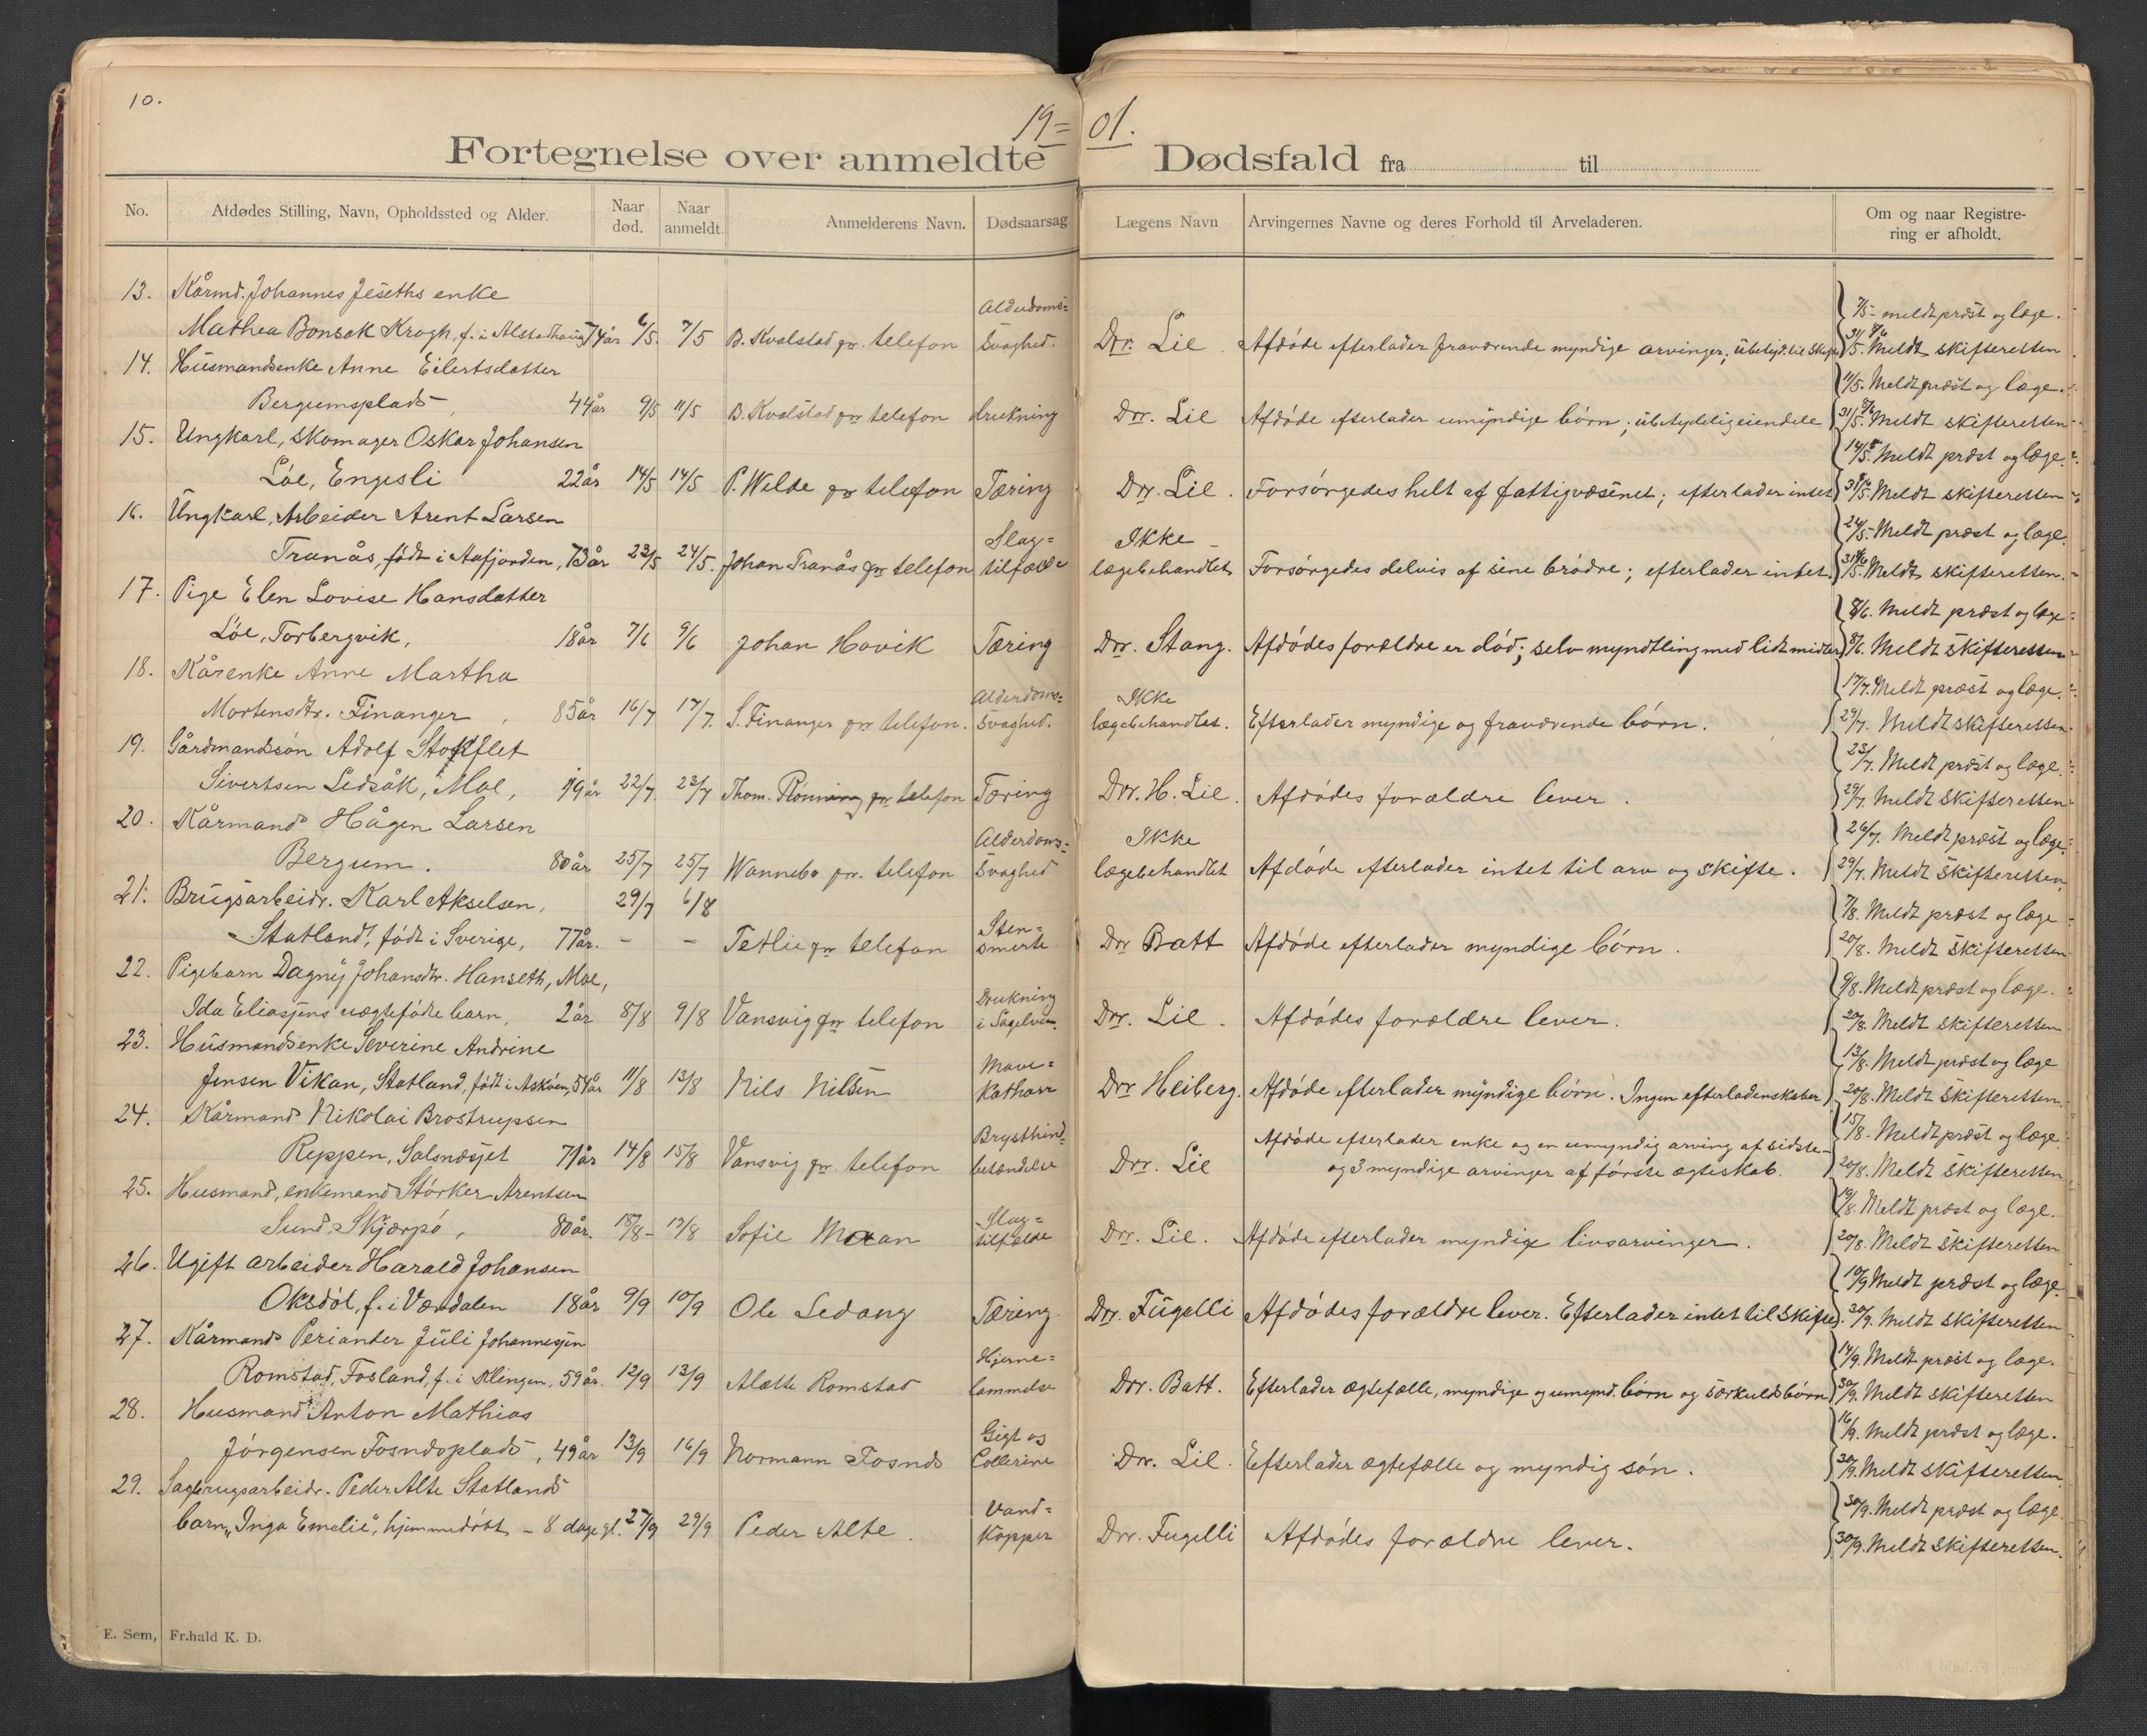 10.
19= 01.
Fortegnelse over anmeldte Dødsfald fra til
No.
Afdødes Stilling, Navn, Opholdssted og Alder.
Naar død.
Naar anmeldt.
Anmelderens Navn.
Dødsaarsag
Lægens Navn
Arvingernes Navne og deres Forhold til Arveladeren.
Om og naar Registre-
ring er afholdt.
13. Kårmd. Johannes Jeseths enke Alderdoms= 7/5 - meldt præst og læge.
Mathea Bonsak Krogh, f. i Alstadhaug 74 år 6/5. 7/5 B. Kvalstad pr. telefon Svaghed. Dr. Lie. Afdøde efterlader fraværende myndige arvinger; 31/5. Meldt skifteretten
14. Husmandsenke Anne Eilertsdatter 11/5. Meldt præst og læge.
Bergumsplads, 44 år 9/5 11/5 B. Kvalstad pr telefon drukning Dr. Lie Afdøde efterlader umyndige børn; ubetydelig eiendele 31/5. Meldt skifteretten
15. Ungkarl, skomager Oskar Johansen 14/5. Meldt præst og læge.
Løe, Engesli 22 år 14/5 14/5 P. Welde pr telefon Tæring Dr. Lie. Forsørgedes helt af fattigvæsenet; efterlader intet 31/5. Meldt skifteretten
16. Ungkarl, Arbeider Arent Larsen Slag= Ikke 24/5. Meldt præst og læge.
Tranås, født i Aafjorden, 73 år 23/5 24/5. Johan Tranås pr telefon tilfælde lægebehandlet Forsørgedes delvis af sine brødre; efterlader intet. 31/5. Meldt skifteretten.
17. Pige Elen Lovise Hansdatter 8/6. Meldt præst og læge
Løe, Torbergvik, 18 år 7/6 9/6 Johan Hovik Tæring Dr. Stang. Afdødes forældre er død; selv myndtling med lidt midler 8/6. Meldt skifteretten
18. Kårenke Anne Martha Alderdoms= Ikke 17/7. Meldt præst og læge.
Mortensdtr. Finanger, 85 år 16/7 17/7. S. Finanger pr telefon. Svaghed. lægebehandlet. Efterlader myndige og fraværende børn. 29/7. Meldt skifteretten
19. Gårdmandssøn Adolf Stofflet 23/7. Meldt præst og læge.
Sivertsen Ledsåk, Moe, 19 år 22/7 23/7 Thom. Rønning pr telefon Tæring Dr. H. Lie. Afdødes forældre lever. 29/7. Meldt skifteretten
20. Kårmand Hågen Larsen Alderdoms= Ikke 26/7. Meldt præst og læge.
Bergum. 80 år 25/7 25/7 Wannebo pr. telefon Svaghed lægebehandlet Afdøde efterlader intet til arv og skifte. 29/7. Meldt skifteretten,
21. Brugsarbeidr. Karl Akselsen, 29/7 6/8 Sten= 7/8. Meldt præst og læge
Statland, født i Sverige, 77 år. - - Tetlie pr telefon smerte Dr Batt Afdøde efterlader myndige børn. 20/8. Meldt skifteretten
22. Pigebarn Dagny Johansdtr. Hanseth, Moe, Drukning 9/8. Meldt præst og læge.
Ida Eliasjens uægtefødte barn, 2 år 8/8 9/8 Vansvig pr telefon i Sagelven. Dr. Lie. Afdødes forældre lever. 20/8. Meldt skifteretten
23. Husmandsenke Severine Andrine Mave= 13/8. Meldt præst og læge
Jensen Vikan, Statland, født i Askøen, 54 år 11/8 13/8 Nils Nilsen Katharr Dr Heiberg. Afdøde efterlader myndige børn. Ingen efterladenskaber 20/8. Meldt skifteretten.
24. Kårmand Nikolai Brostrupsen Brysthind= Afdøde efterlader enke og en umyndig arving af sidste 15/8. Meldt præst og læge
Reppen, Salsnæsjet 71 år 14/8 15/8 Vansvig pr telefon betændelse Dr. Lie og 3 myndige arvinger af første ægteskab. 20/8. Meldt skifteretten
25. Husmand, enkemand Størker Arentsen Slag= 19/8. Meldt præst og læge.
Sund, Skjærpø, 80 år. 18/8 - 19/8 Sofie Moan tilfælde Dr. Lie. Afdøde efterlader myndige livsarvinger. 20/8. Meldt skifteretten
26. Ugift arbeider Harald Johansen 10/9 Meldt præst og læge.
Oksdøl, f. i Værdalen 18 år 9/9 10/9 Ole Ledang Tæring. Dr. Fugelli Afdødes forældre lever. Efterlader intet til skifte. 30/9. Meldt skifteretten
27. Kårmand Perianter Juli Johannesjen Hjerne= 14/9. Meldt præst og læge.
Romstad, Fosland, f. i Klingen, 59 år. 12/9 13/9 Alette Romstad lammelse Dr. Batt. Efterlader ægtefælle, myndige og umynd. børn og særkuldsbørn 30/9. Meldt skifteretten
28. Husmand Anton Mathias Gigt og 16/9. Meldt præst og læge.
Jørgensen Fosndsplads, 49 år 13/9 16/9 Normann Fosnds Collerine Dr. Lie. Efterlader ægtefælle og myndig søn. 30/9. Meldt skifteretten
29. Sagbrugsarbeidr. Peder Alte Statlands Vand= 30/9. Meldt præst og læge.
barn „Inga Emelie", hjemmedøbt - 8 dage gl. 27/9 29/9 Peder Alte. Kopper Dr. Fugelli Afdødes forældre lever. 30/9. Meldt skifteretten.
E. Sem, Fr.hald K. D.